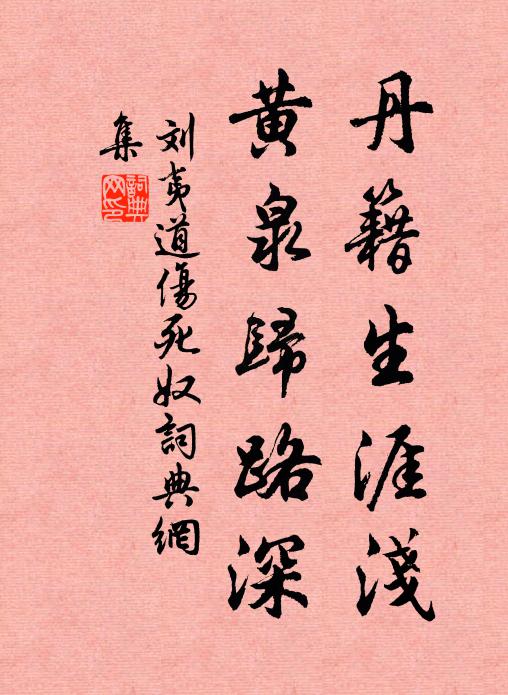 丹籍生涯淺
黃泉歸路深
刘夷道傷死奴詞典網
集
詞典
网印